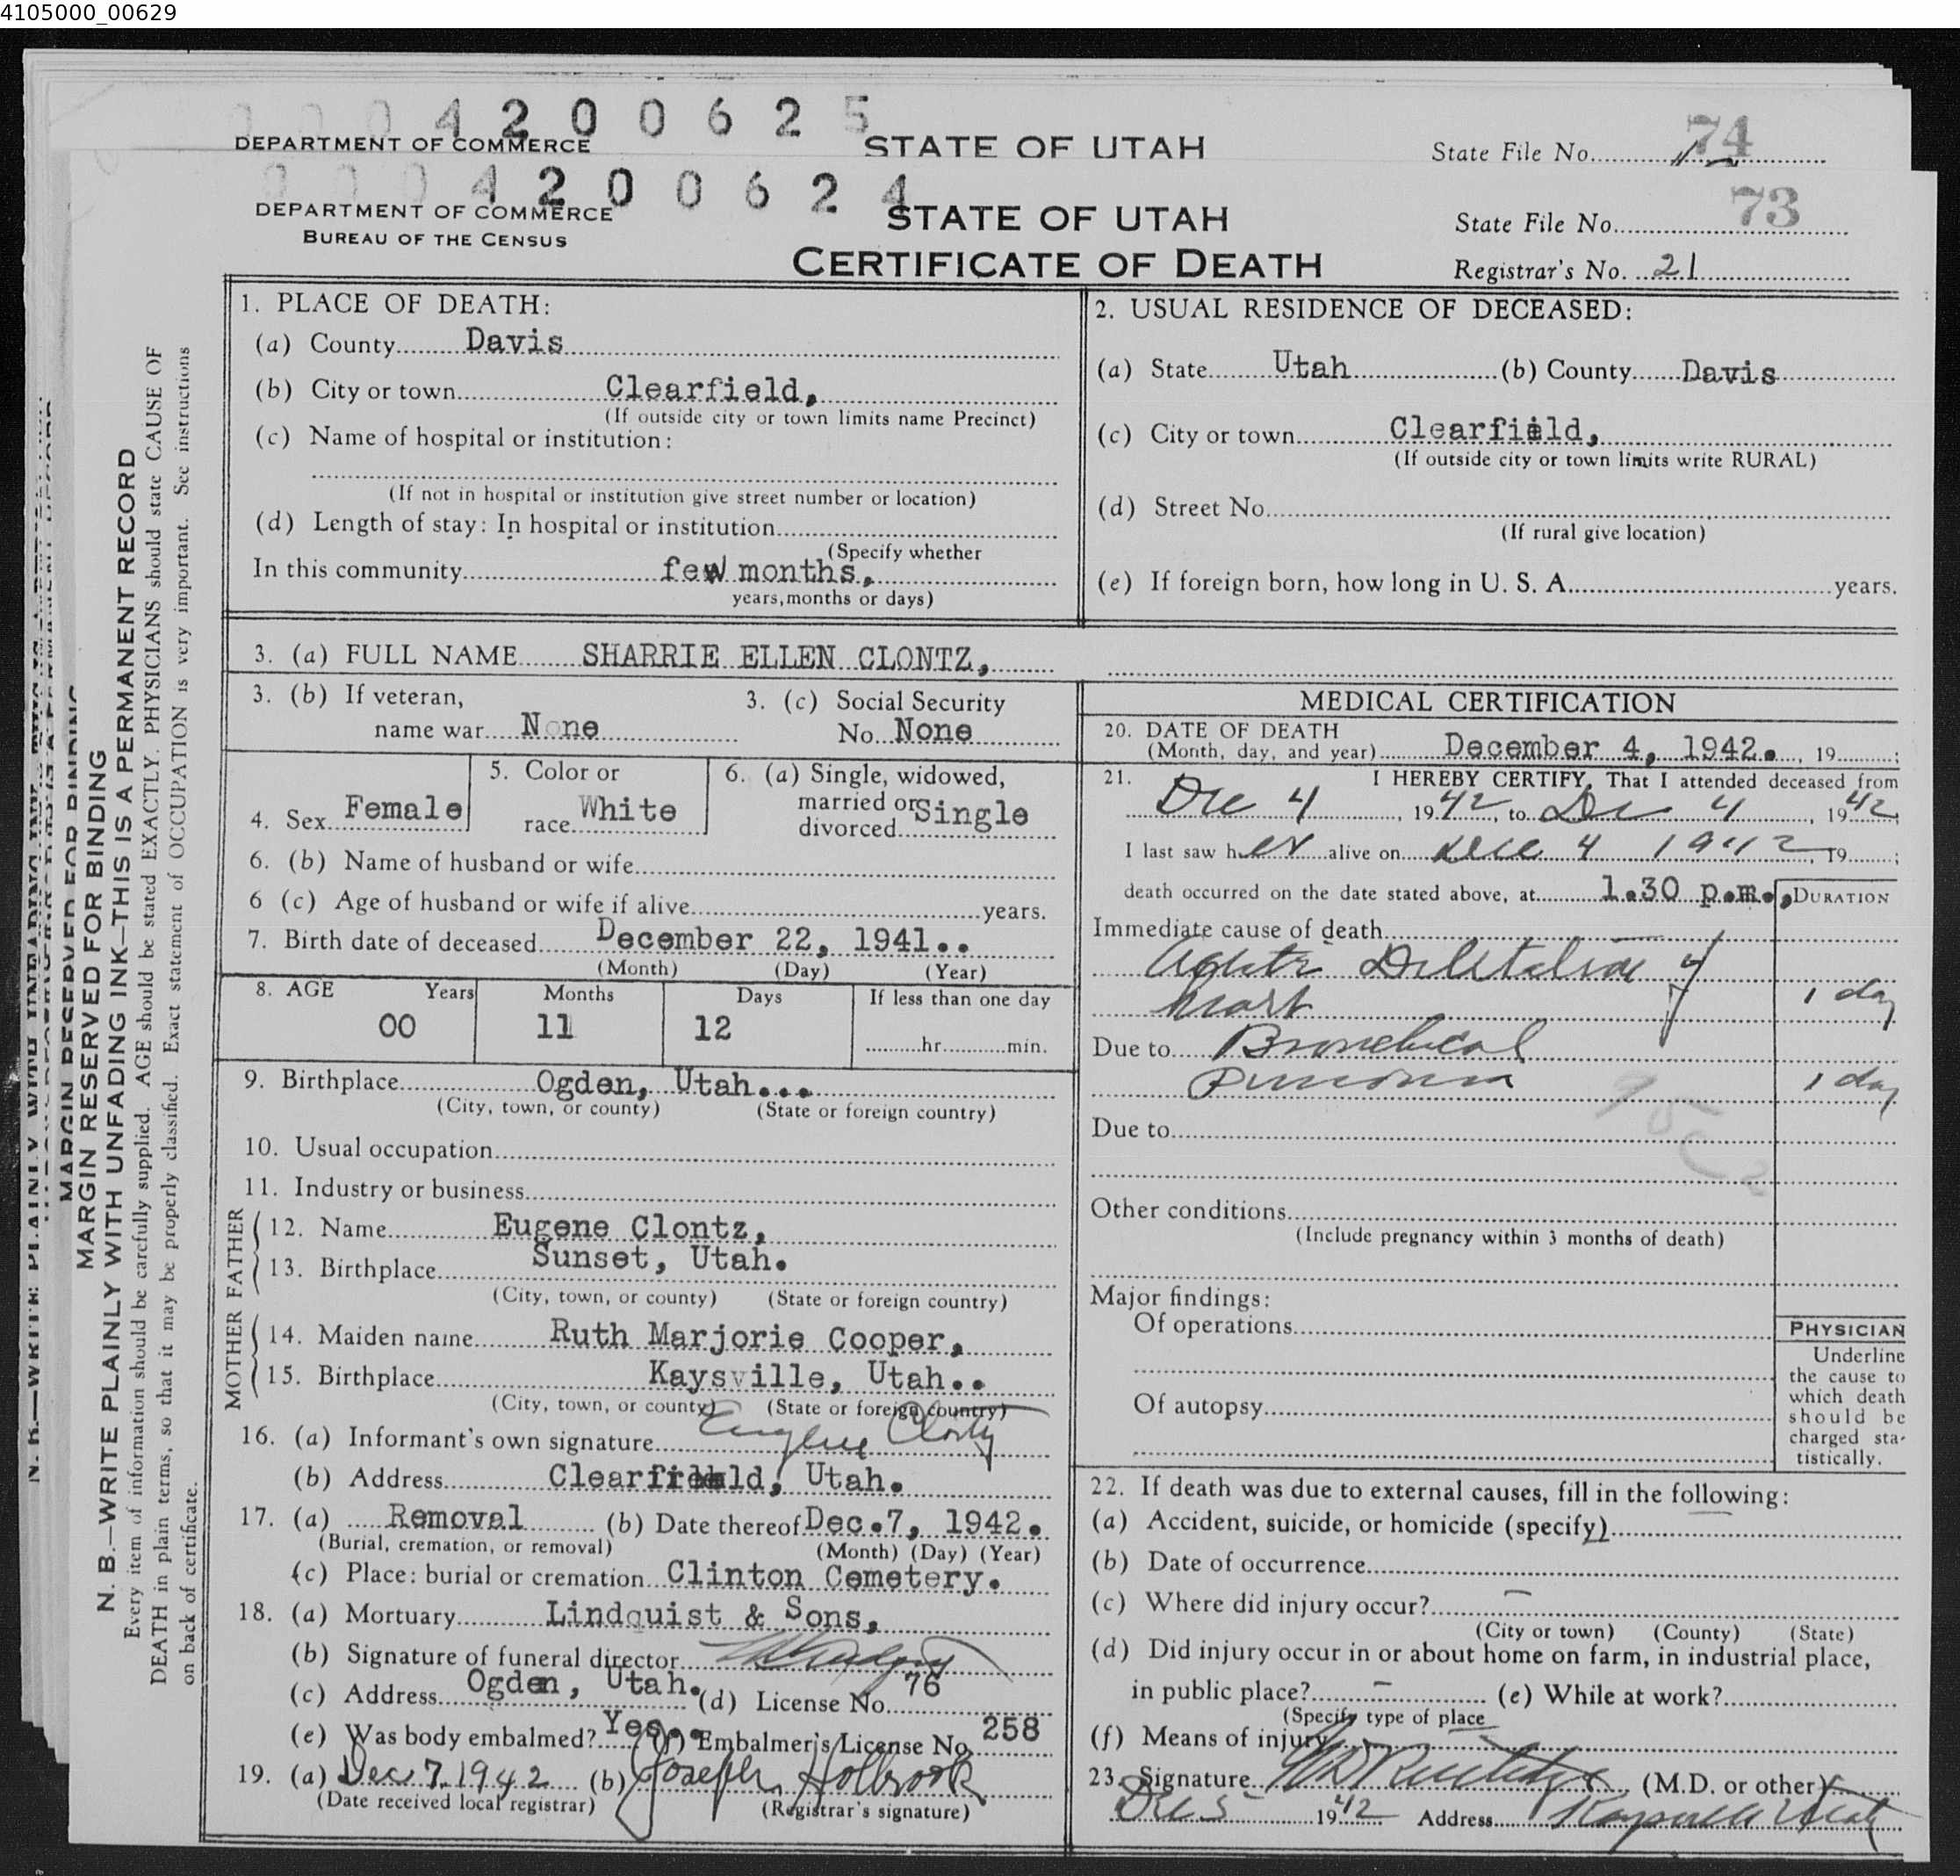 4105000_00629
0004200625
DEPARTMENT OF COMMERCE
STATE OF UTAH
State File No. 74
0004200624
DEPARTMENT OF COMMERCE
BUREAU OF THE CENSUS
STATE OF UTAH
CERTIFICATE OF DEATH
State File No. 73
Registrar's No. 21
MARGIN RESERVED FOR BINDING
N. B.—WRITE PLAINLY WITH UNFADING INK—THIS IS A PERMANENT RECORD
Every item of information should be carefully supplied. AGE should be stated EXACTLY. PHYSICIANS should state CAUSE OF
DEATH in plain terms, so that it may be properly classified. Exact statement of OCCUPATION is very important. See instructions
on back of certificate.
1. PLACE OF DEATH:
(a) County Davis
(b) City or town Clearfield,
(If outside city or town limits name Precinct)
(c) Name of hospital or institution:
(If not in hospital or institution give street number or location)
(d) Length of stay: In hospital or institution
(Specify whether
In this community few months,
years, months or days)
2. USUAL RESIDENCE OF DECEASED:
(a) State Utah (b) County Davis
(c) City or town Clearfield,
(If outside city or town limits write RURAL)
(d) Street No.
(If rural give location)
(e) If foreign born, how long in U. S. A. years.
3. (a) FULL NAME SHARRIE ELLEN CLONTZ,
3. (b) If veteran,
name war None
3. (c) Social Security
No. None
4. Sex Female
5. Color or
race White
6. (a) Single, widowed,
married or
divorced Single
6. (b) Name of husband or wife
6 (c) Age of husband or wife if alive years.
7. Birth date of deceased December 22, 1941..
(Month) (Day) (Year)
8. AGE Years Months Days If less than one day
00 11 12
hr. min.
9. Birthplace Ogden, Utah...
(City, town, or county) (State or foreign country)
10. Usual occupation
11. Industry or business
FATHER
12. Name Eugene Clontz,
13. Birthplace Sunset, Utah.
(City, town, or county) (State or foreign country)
MOTHER
14. Maiden name Ruth Marjorie Cooper,
15. Birthplace Kaysville, Utah..
(City, town, or county) (State or foreign country)
16. (a) Informant's own signature Eugene Clontz
(b) Address Clearfield, Utah.
17. (a) Removal (b) Date thereof Dec.7, 1942.
(Burial, cremation, or removal) (Month) (Day) (Year)
(c) Place: burial or cremation Clinton Cemetery.
18. (a) Mortuary Lindquist & Sons,
(b) Signature of funeral director
(c) Address Ogden, Utah. (d) License No. 76
(e) Was body embalmed? Yes.. (f) Embalmer's License No. 258
19. (a) Dec 7, 1942 (b) Joseph Holbrook
(Date received local registrar) (Registrar's signature)
MEDICAL CERTIFICATION
20. DATE OF DEATH
(Month, day, and year) December 4, 1942. , 19 ;
21. I HEREBY CERTIFY, That I attended deceased from
Dec 4, 1942, to Dec 4, 1942;
I last saw her alive on Dec 4 1942, 19 ;
death occurred on the date stated above, at 1.30 p.m.,
DURATION
Immediate cause of death
Acute Dilitation of
heart 1 day
Due to Bronchical
Pnumonia 1 day
Due to
Other conditions
(Include pregnancy within 3 months of death)
Major findings:
Of operations
Of autopsy
PHYSICIAN
Underline
the cause to
which death
should be
charged sta-
tistically.
22. If death was due to external causes, fill in the following:
(a) Accident, suicide, or homicide (specify)
(b) Date of occurrence
(c) Where did injury occur?
(City or town) (County) (State)
(d) Did injury occur in or about home on farm, in industrial place,
in public place? (e) While at work?
(Specify type of place
(f) Means of injury
23. Signature (M.D. or other)
Dec 5 1942 Address Kaysville Utah